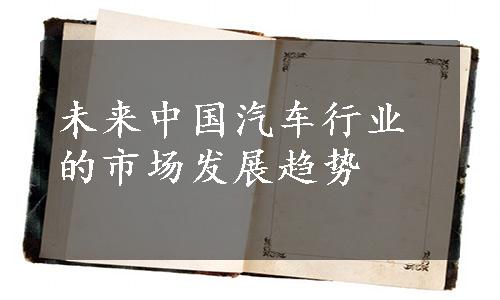 未来中国汽车行业
的市场发展趋势